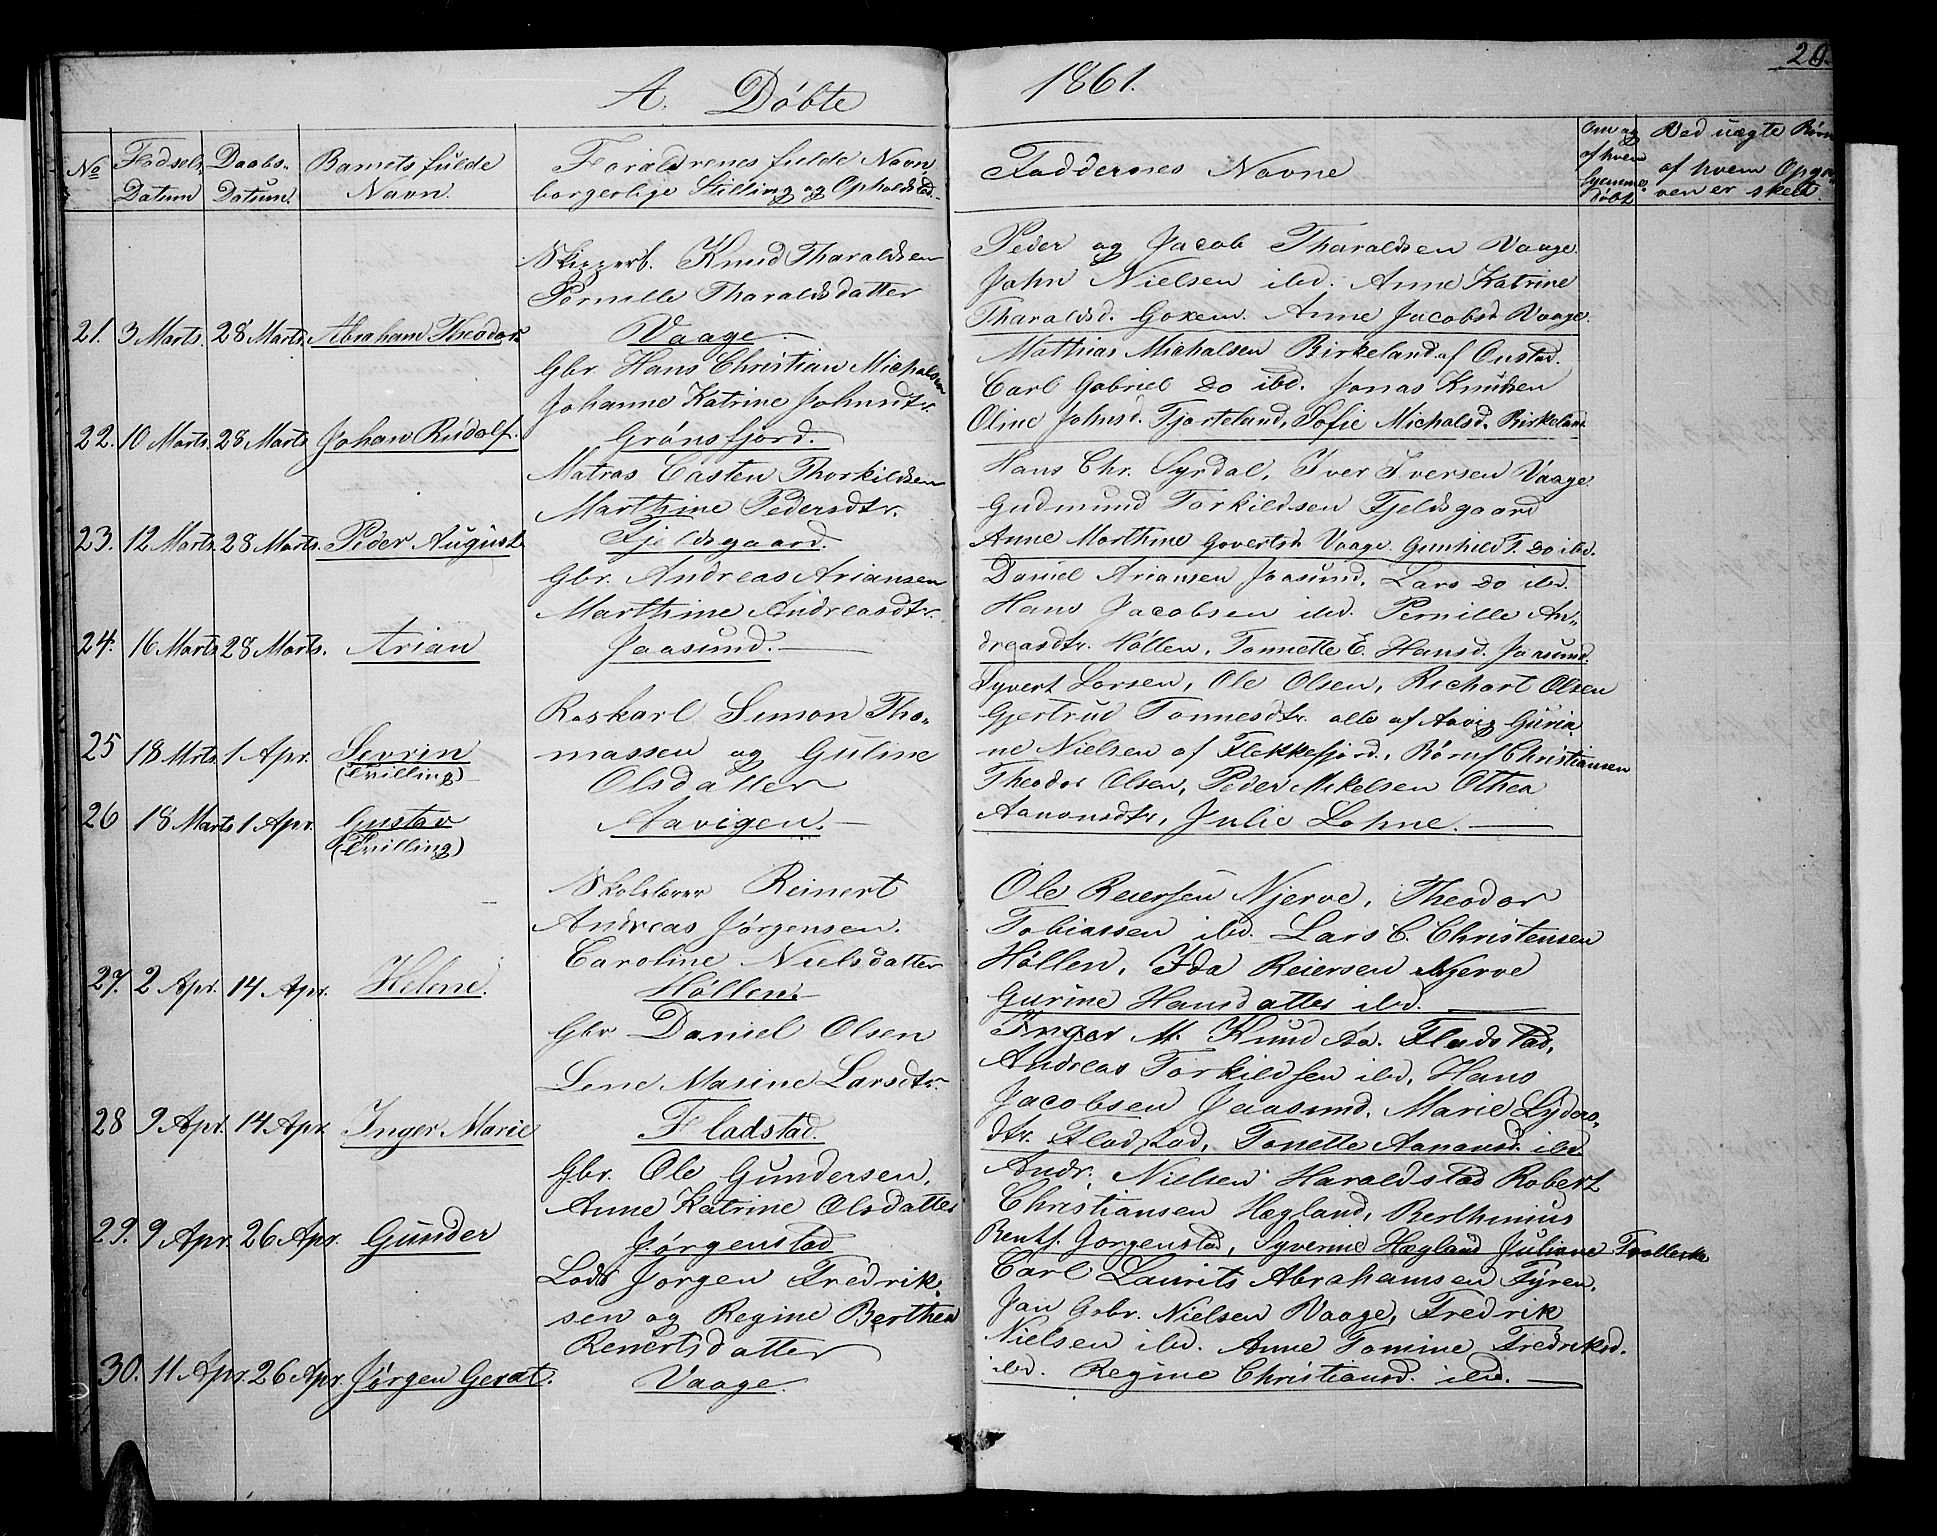 A. Döbte 1861.
20.
No
Födsels Datum
Daabs- Datum.
Barnets fulde Navn.
Forældrenes fulde Navn, borgerlige Stilling og Opholdsted.
Faddernes Navne
Om og af hvem hjemmedöbt
Ved uægte Börn af hvem Opgaven er skeet.
Skipperb. Knud Tharaldsen
Pernille Tharaldsdatter
21. 3 Marts. 28 Marts. Abraham Theodor Vaage.
Peder og Jacob Tharaldsen Vaage.
John Nielsen ibd. Anne Katrine
Tharaldsd. Goxem. Anne Jacobsd Vaage.
Gbr. Hans Christian Michalsen
Johanne Katrine Johnsdtr.
22. 10 Marts. 28 Marts Johan Rudolf. Grönsfjord.
Mathias Michalsen Birkeland af Oustad.
Carl Gabriel do ibd. Jonas Knudsen
Oline Johnsd. Tjorteland, Sofie Michalsd. Birkeland
Matros Casten Thorkildsen
Marthine Pedersdtr.
23. 12 Marts. 28 Marts. Peder August Fjeldsgaard.
Hans Chr. Syrdal, Iver Iversen Vaage
Gudmund Torkildsen Fjeldsgaard
Anne Marthine Govertsd. Vaage. Gunhild T. do ibd.
Gbr. Andreas Ariansen
Marthine Andreasdtr.
24. 16 Marts 28 Marts. Arian Jaasund.
Daniel Ariansen Jaasund, Lars do ibd.
Hans Jacobsen ibd. Pernille An-
dreasdtr. Höllen, Tonnette E. Hansd. Jaasund.
Roskarl Simon Tho-
massen og Guline
Olsdatter
Aavigen.
25 18 Mrts. 1 Apr. Sevrin
(Tvilling)
26 18 Marts 1 Apr. Gustav
(Tvilling)
Syvert Larsen, Ole Olsen, Richart Olsen
Gjertrud Tonnesdtr. alle af Aavig Guria-
ne Nielsen af Flekkefjord, Böruf Christiansen
Theodor Olsen, Peder Mikelsen Othea
Aanonsdtr, Julie Lohne.
Skolelærer Reinert
Andreas Jörgensen.
Caroline Nielsdatter
27. 2 Apr. 14 Apr. Helene. Höllen.
Ole Reiersen Njerve, Theodor
Tobiassen ibd. Lars C. Christensen
Höllen, Ida Reiersen Njerve
Gurine Hansdatter ibd.
Gbr Daniel Olsen
Lene Masine Larsdtr.
28 9 Apr. 14 Apr. Inger Marie Fladstad.
Inger M. Knudsd. Fladstad,
Andreas Torkildsen ibd, Hans
Jacobsen Jaasund, Marie Lyders-
dtr. Fladstad, Tonette Aanonsd. ibd.
Gbr. Ole Gundersen,
Anne Katrine Olsdatter
29. 9 Apr. 26 Apr. Gunder Jörgenstad
Andr. Nielsen Haraldstad Robert
Christiansen Hægland, Berthinius
Bents. Jorgenstad, Syverine Hægland Juliane
Lods Jorgen Fredrik-
sen og Regine Berthea
Reinertsdatter
30. 11 Apr. 26 Apr. Jörgen Gerat. Vaage.
Carl Laurits Abrahamsen Tyren.
Jan Gabr. Nielsen Vaage, Fredrik
Nielsen ibd. Anne Tomine Fredriksd.
ibd. Regine Christiansd. ibd.